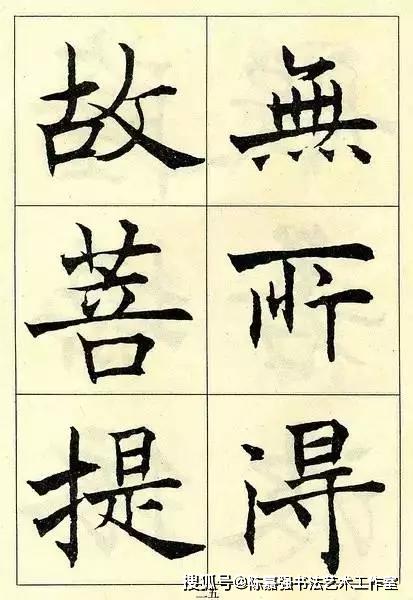 無所得
故菩提
二五
搜狐号@陈嘉强书法艺术工作室